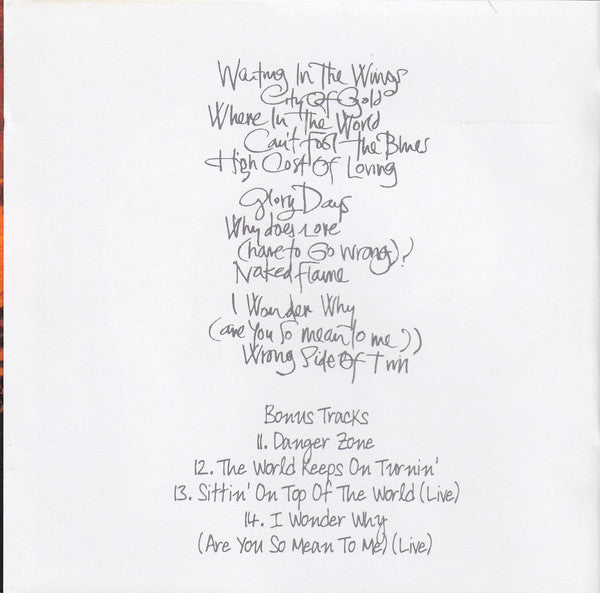 Waiting In The Wings
City Of Gold
Where In The World
Can't Fool The Blues
High Cost Of Loving
Glory Days
Why does Love
(have to Go Wrong)?
Naked Flame
I Wonder Why
(are You So mean to me?)
Wrong Side Of Town
Bonus Tracks
11. Danger Zone
12. The World Keeps On Turnin'
13. Sittin' On Top Of The World (Live)
14. I Wonder Why
(Are You So Mean To Me) (Live)